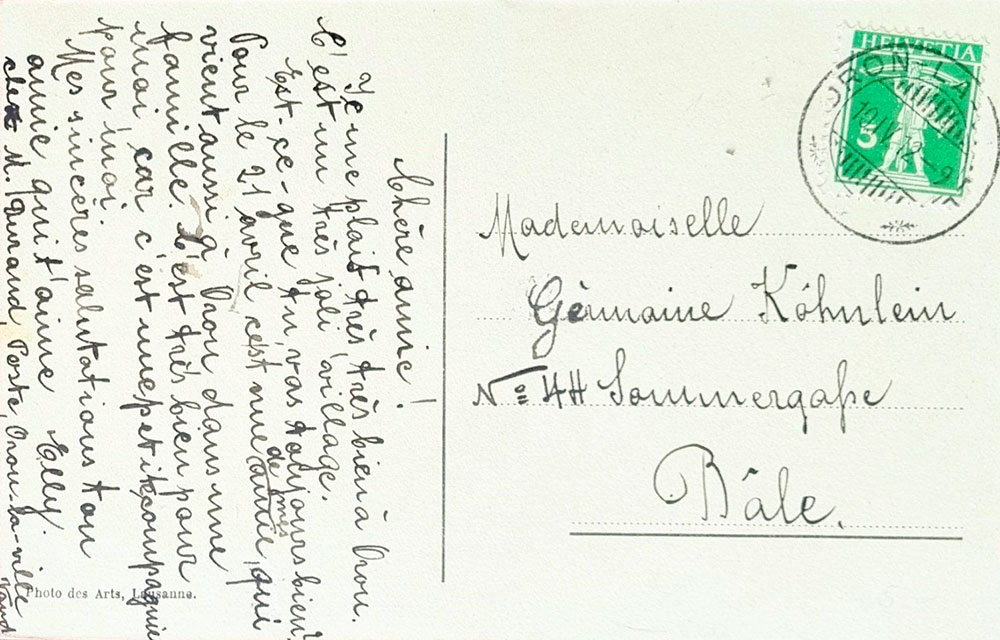 Chère amie!
Je me plais très très bien à Oron.
C'est un très joli village.
Est-ce-que tu vas toujours bien?
Pour le 21 avril c'est une de mes amie, qui
vient aussi à Oron dans une
famille. C'est très bien pour
moi car c'est une petite compagnie
pour moi.
Mes sincères salutations ton
amie qui t'aime Elly.
chez M. Durand, Poste, Oron-la-ville
Vaud
HELVETIA
5
ORON-LA-
10.IV.12-9
Mademoiselle
Gèrmaine Köhnlein
No 44 Sommergaße
Bâle.
Photo des Arts, Lausanne.